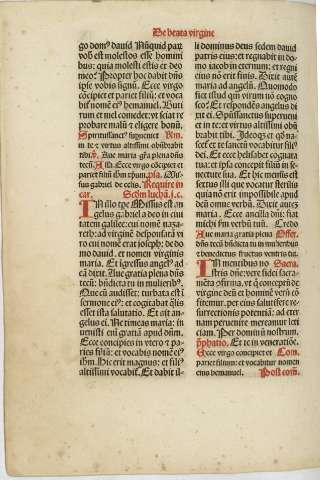 De beata virgine
go domꝰ dauid Nũquid par
vobis est molestos esse homini
bus: quia molesti estis et deo
meo? Propter hoc dabit dñs
ipse vobis signũ. Ecce virgo
cõcipiet et pariet filiũ: et voca
bit nomẽ eiꝰ hemanuel. Buti
rum et mel comedet: vt sciat re
probare malũ et eligere bonũ.
Spiritussanctꝰ superueniet
in te ⁊ virtus altissimi obũbrabit
tibi. Aue maria gr̃a plena dñs
tecũ. Ecce virgo cõcipiet et
pariet filiũ
sus gabriel de celis. Require in
car. Scðm lucã. j. c.
In illo tpe Missus est an
gelus gabriel a deo in ciui
tatem galilee: cui nomẽ naza
reth: ad virginẽ desponsatã vi
ro cui nomen erat ioseph: de do
mo dauid. et nomen virginis
maria. Et ingressus angelꝰ ad
eã dixit. Aue gratia plena dñs
tecũ: bñdicta tu in mulieribꝰ.
Que cũ audisset: turbata est ĩ
sermone eiꝰ: et cogitabat q̃lis
esset ista salutatio. Et ait an
gelus ei. Ne timeas maria: in
uenisti em̃ gratiã apud dũm.
Ecce concipies in vtero ⁊ pa
ries filiũ: et vocabis nomẽ eiꝰ
ihm̃. Hic erit magnus: et filiꝰ
altissimi vocabit̃. Et dabit il-
li dominus deus sedem dauid
patris eius: et regnabit in do
mo iacob in eternum: et regni
eius nõ erit finis. Dixit autẽ
maria ad angelũ. Quomodo
fiet istud qm̃ virum nõ cogno
sco? Et respondẽs angelus di
xit ei. Spũssanctus superueni
et in te: et virtus altissimi obũ
brabit tibi. Ideoqꝫ et qð na
scet̃ ex te sanctũ vocabitur fili
us dei. Et ecce helisabet cognata
tua: et ipsa concepit filiũ in se
nectute sua. Et hic mensis est
sextus illi que vocatur sterilis
quia nõ erit impossibile apud
deũ omne verbũ. Dixit autẽ
maria. Ecce ancilla dñi: fiat
michi s̃m verbũ tuũ. Credo
Aue maria gratia plena Offer.
dñs tecũ bñdicta tu in mulieribus
⁊ benedictus fructus ventris tui.
In mentibus nr̃is Secre.
dñe: vere fidei sacra
mẽta ↄfirma. vt q̃ conceptũ de
virgine deũ et hominẽ verũ cõ
fitemur. per eius salutifere re
surrectionis potentiã: ad eter
nam peruenire mereamur leti
ciam. Per dominũ nostrum.
p̃phatio. Et te in veneratiõe.
Ecce virgo concipiet et Com.
pariet filium: et vocabitur nomen
eius hemanuel. Post com̃.